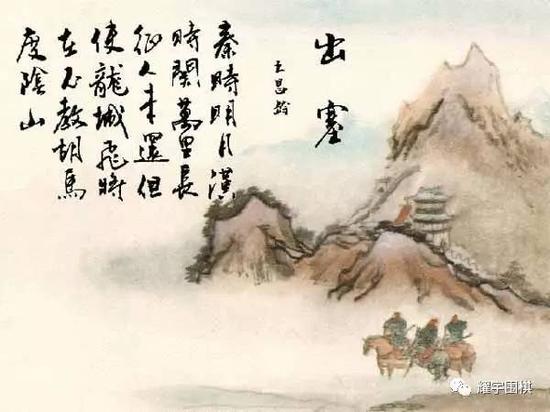 出塞
王昌龄
秦時明月漢
時関萬里長
征人未還但
使龍城飛將
在不教胡馬
度陰山
耀宇围棋